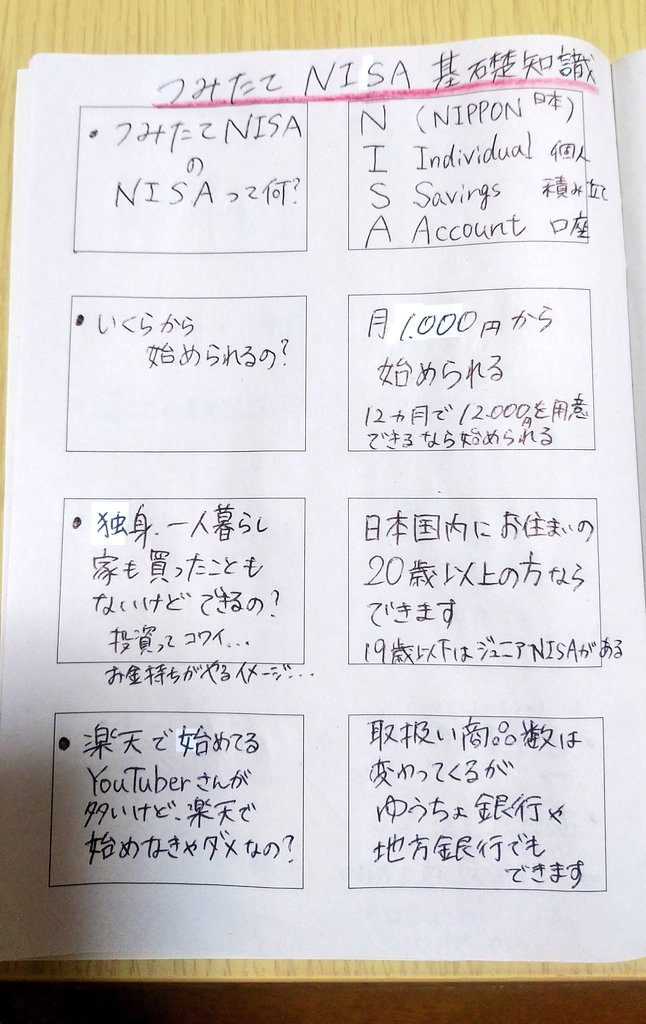 つみたて NISA 基礎知識
・つみたてNISA
の
NISAって何?
N (NIPPON 日本)
I Individual 個人
S Savings 積み立て
A Account 口座
・いくらから
始められるの?
月1.000円から
始められる
12ヵ月で12.000円を用意
できるなら始められる
・独身.一人暮らし
家も買ったことも
ないけどできるの?
投資ってコワイ...
お金持ちがやるイメージ...
日本国内にお住まいの
20歳以上の方なら
できます
19歳以下はジュニアNISAがある
・楽天で始めてる
YouTuberさんが
多いけど、楽天で
始めなきゃダメなの?
取扱い商品数は
変わってくるが
ゆうちょ銀行や
地方銀行でも
できます